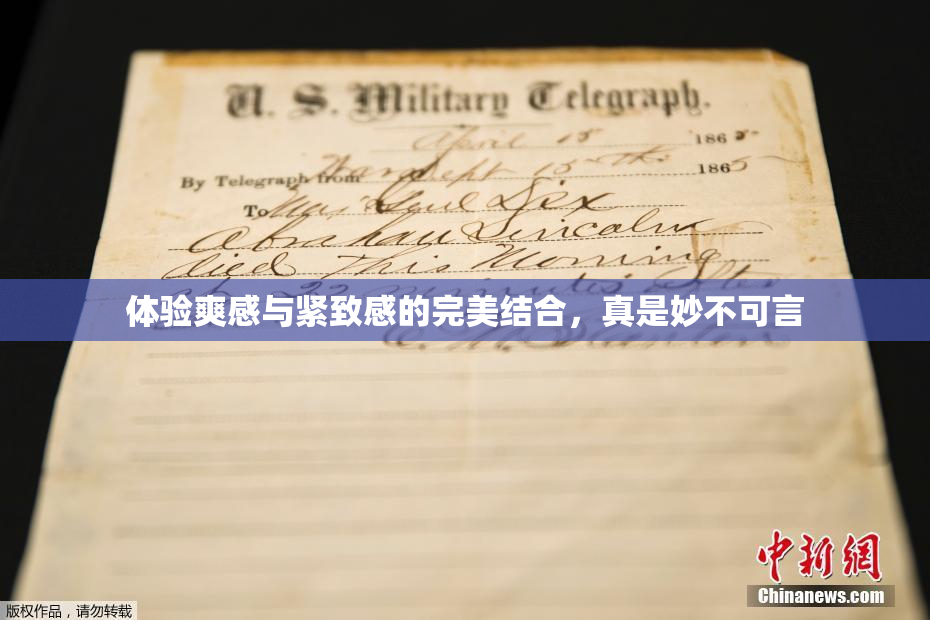 U. S. Military Telegraph.
April 15 1865
By Telegraph from War Dept 15th 1865
To Maj Genl Dix
Abraham Lincoln
died This Morning
at 22 minutes after
体验爽感与紧致感的完美结合，真是妙不可言
中新網
Chinanews.com
版权作品，请勿转载